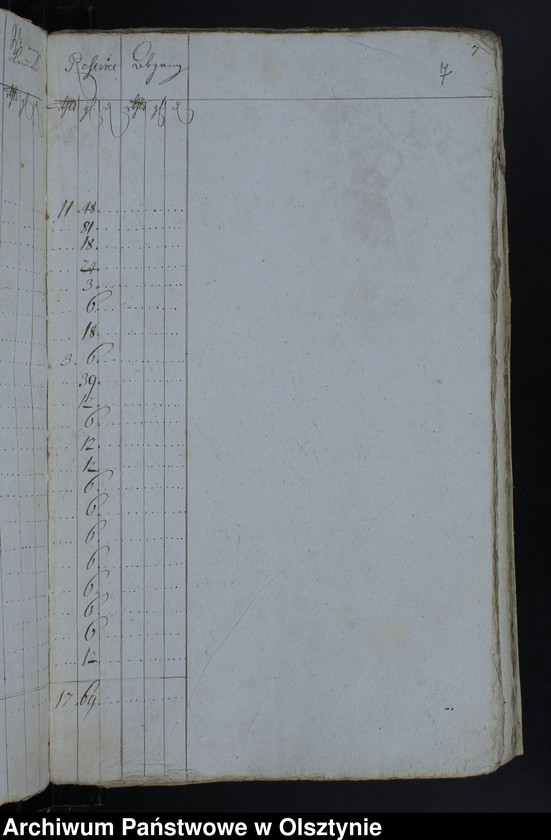 7
7
Reserve Abgang
rthl gl d rthl gl d
11 48
81
18
24
3
6
18
3 6
39
12
6
12
12
6
6
6
6
6
6
6
12
17 69
Archiwum Państwowe w Olsztynie